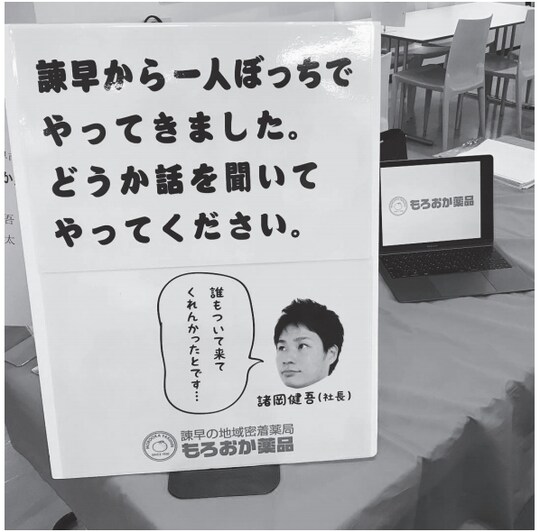 諫早から一人ぼっちで
やってきました。
どうか話を聞いて
やってください。
誰もついて来て
くれんかったとです…
諸岡健吾(社長)
諫早の地域密着薬局
もろおか薬品
もろおか薬品
吾
太